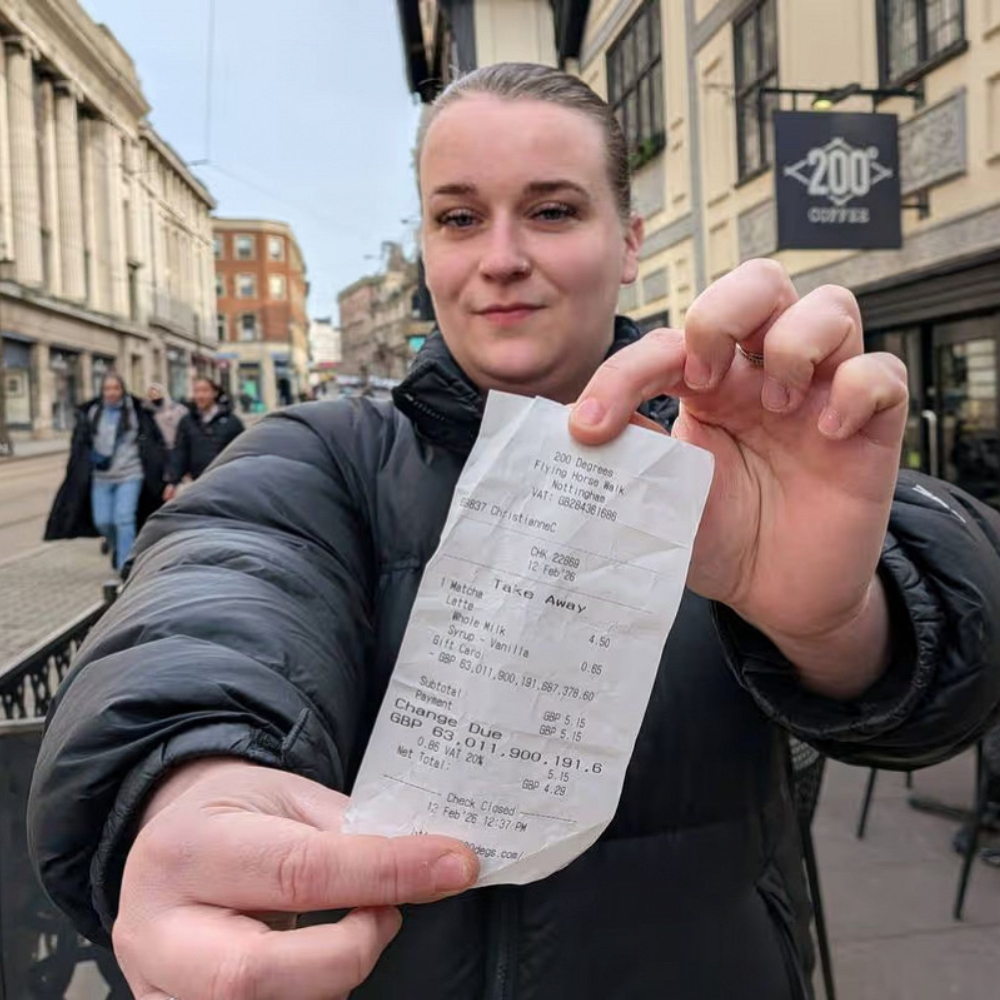 200°
COFFEE
200 Degrees
Flying Horse Walk
Nottingham
VAT: GB284361686
63837 ChristianneC
CHK 22869
12 Feb'26
Take Away
1 Matcha
Latte 4.50
Whole Milk
Syrup - Vanilla 0.65
Gift Card
- GBP 63,011,900,191,687,378.60
Subtotal GBP 5.15
Payment GBP 5.15
Change Due
GBP 63,011,900,191,6
0.86 VAT 20% 5.15
Net Total: GBP 4.29
Check Closed
12 Feb'26 12:37 PM